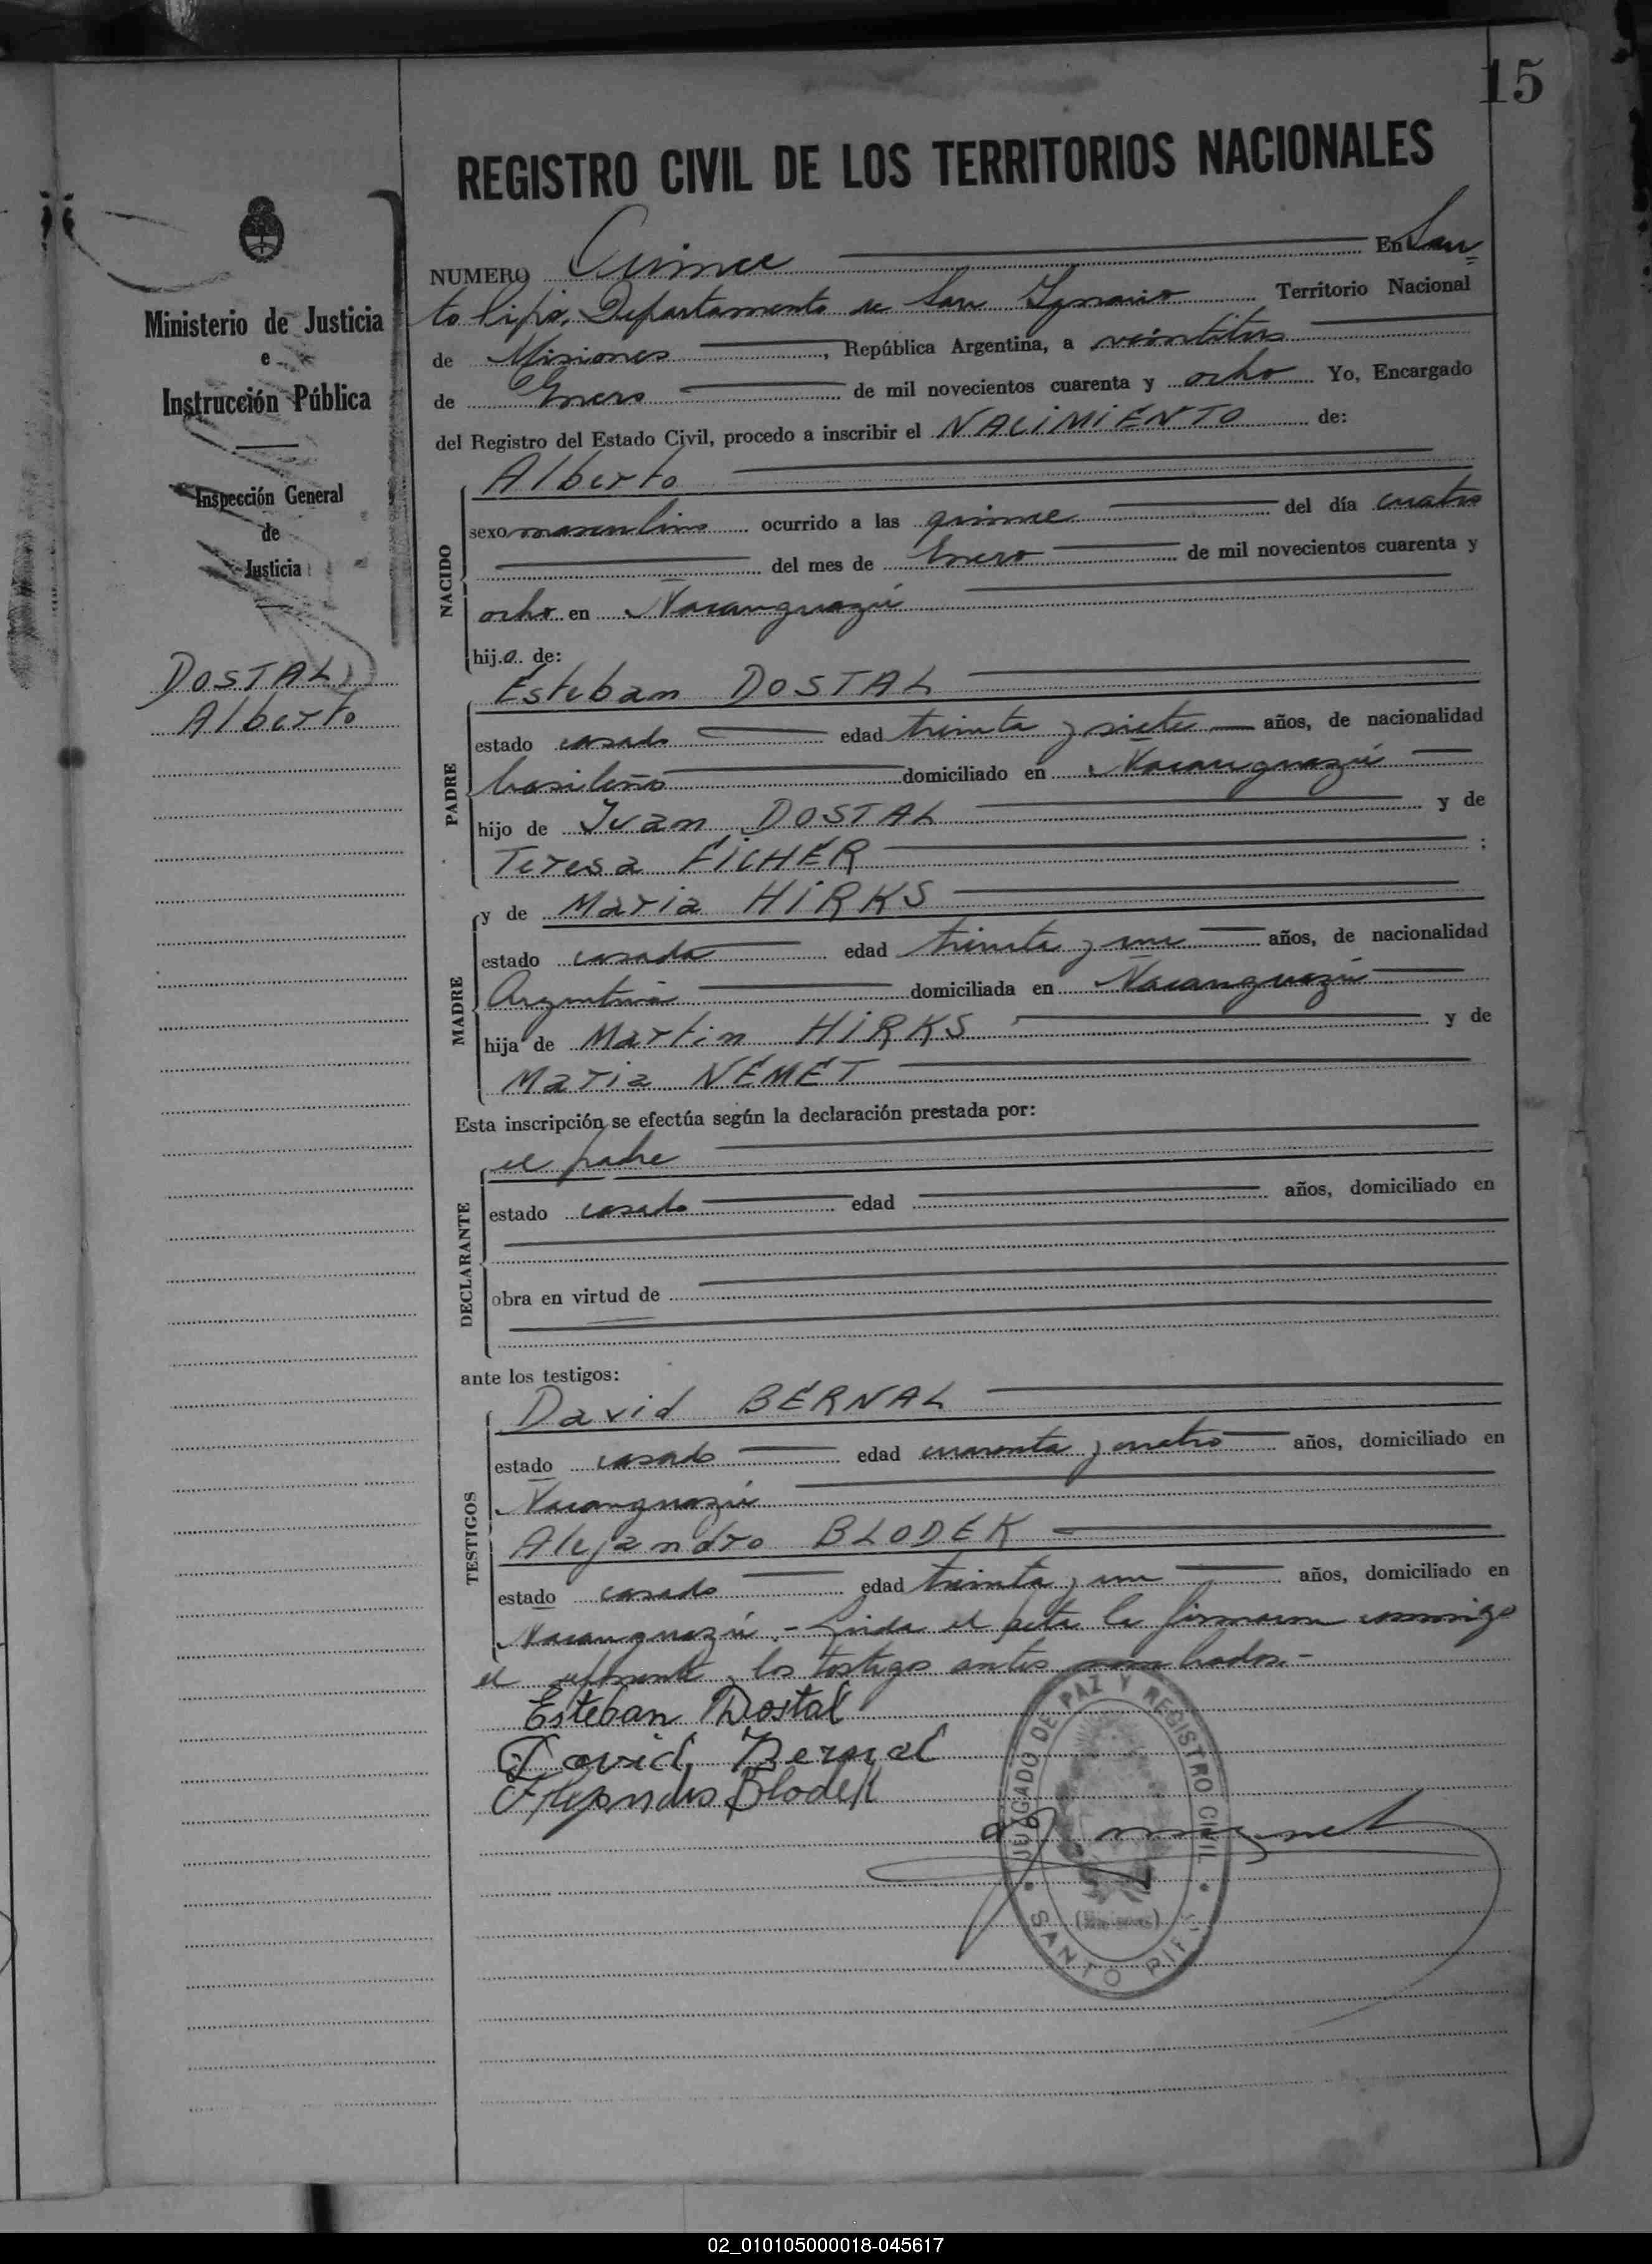 15
REGISTRO CIVIL DE LOS TERRITORIOS NACIONALES
Ministerio de Justicia
e
Instrucción Pública
Inspección General
de
Justicia
DOSTAL
Alberto
NUMERO Quince En San
to Pipó, Departamento de San Ignacio Territorio Nacional
de Misiones, República Argentina, a veintitres
de Enero de mil novecientos cuarenta y ocho Yo, Encargado
del Registro del Estado Civil, procedo a inscribir el NACIMIENTO de:
NACIDO
Alberto
sexo masculino ocurrido a las quince del día cuatro
del mes de Enero de mil novecientos cuarenta y
ocho en Ñacanguazú
hij.o. de:
PADRE
Esteban DOSTAL
estado casado edad treinta y siete años, de nacionalidad
brasileño domiciliado en Ñacanguazú
hijo de Juan DOSTAL y de
Teresa FICHER ;
MADRE
y de Maria HIRKS
estado casada edad treinta y un años, de nacionalidad
Argentina domiciliada en Ñacanguazú
hija de Martin HIRKS y de
Maria NEMET
Esta inscripción se efectúa según la declaración prestada por:
DECLARANTE
el padre
estado casado edad años, domiciliado en
obra en virtud de
ante los testigos:
TESTIGOS
David BERNAL
estado casado edad cuarenta y cuatro años, domiciliado en
Ñacanguazú
Alejandro BLODEK
estado casado edad treinta y un años, domiciliado en
Ñacanguazú.- Leida el acta la firmaron conmigo
el y los testigo antes nombrados.-
Esteban Dostal
David Bernal
Alejandro Blodek
JUZGADO DE PAZ Y REGISTRO CIVIL
(Misiones)
SANTO PIPÓ
02_010105000018-045617